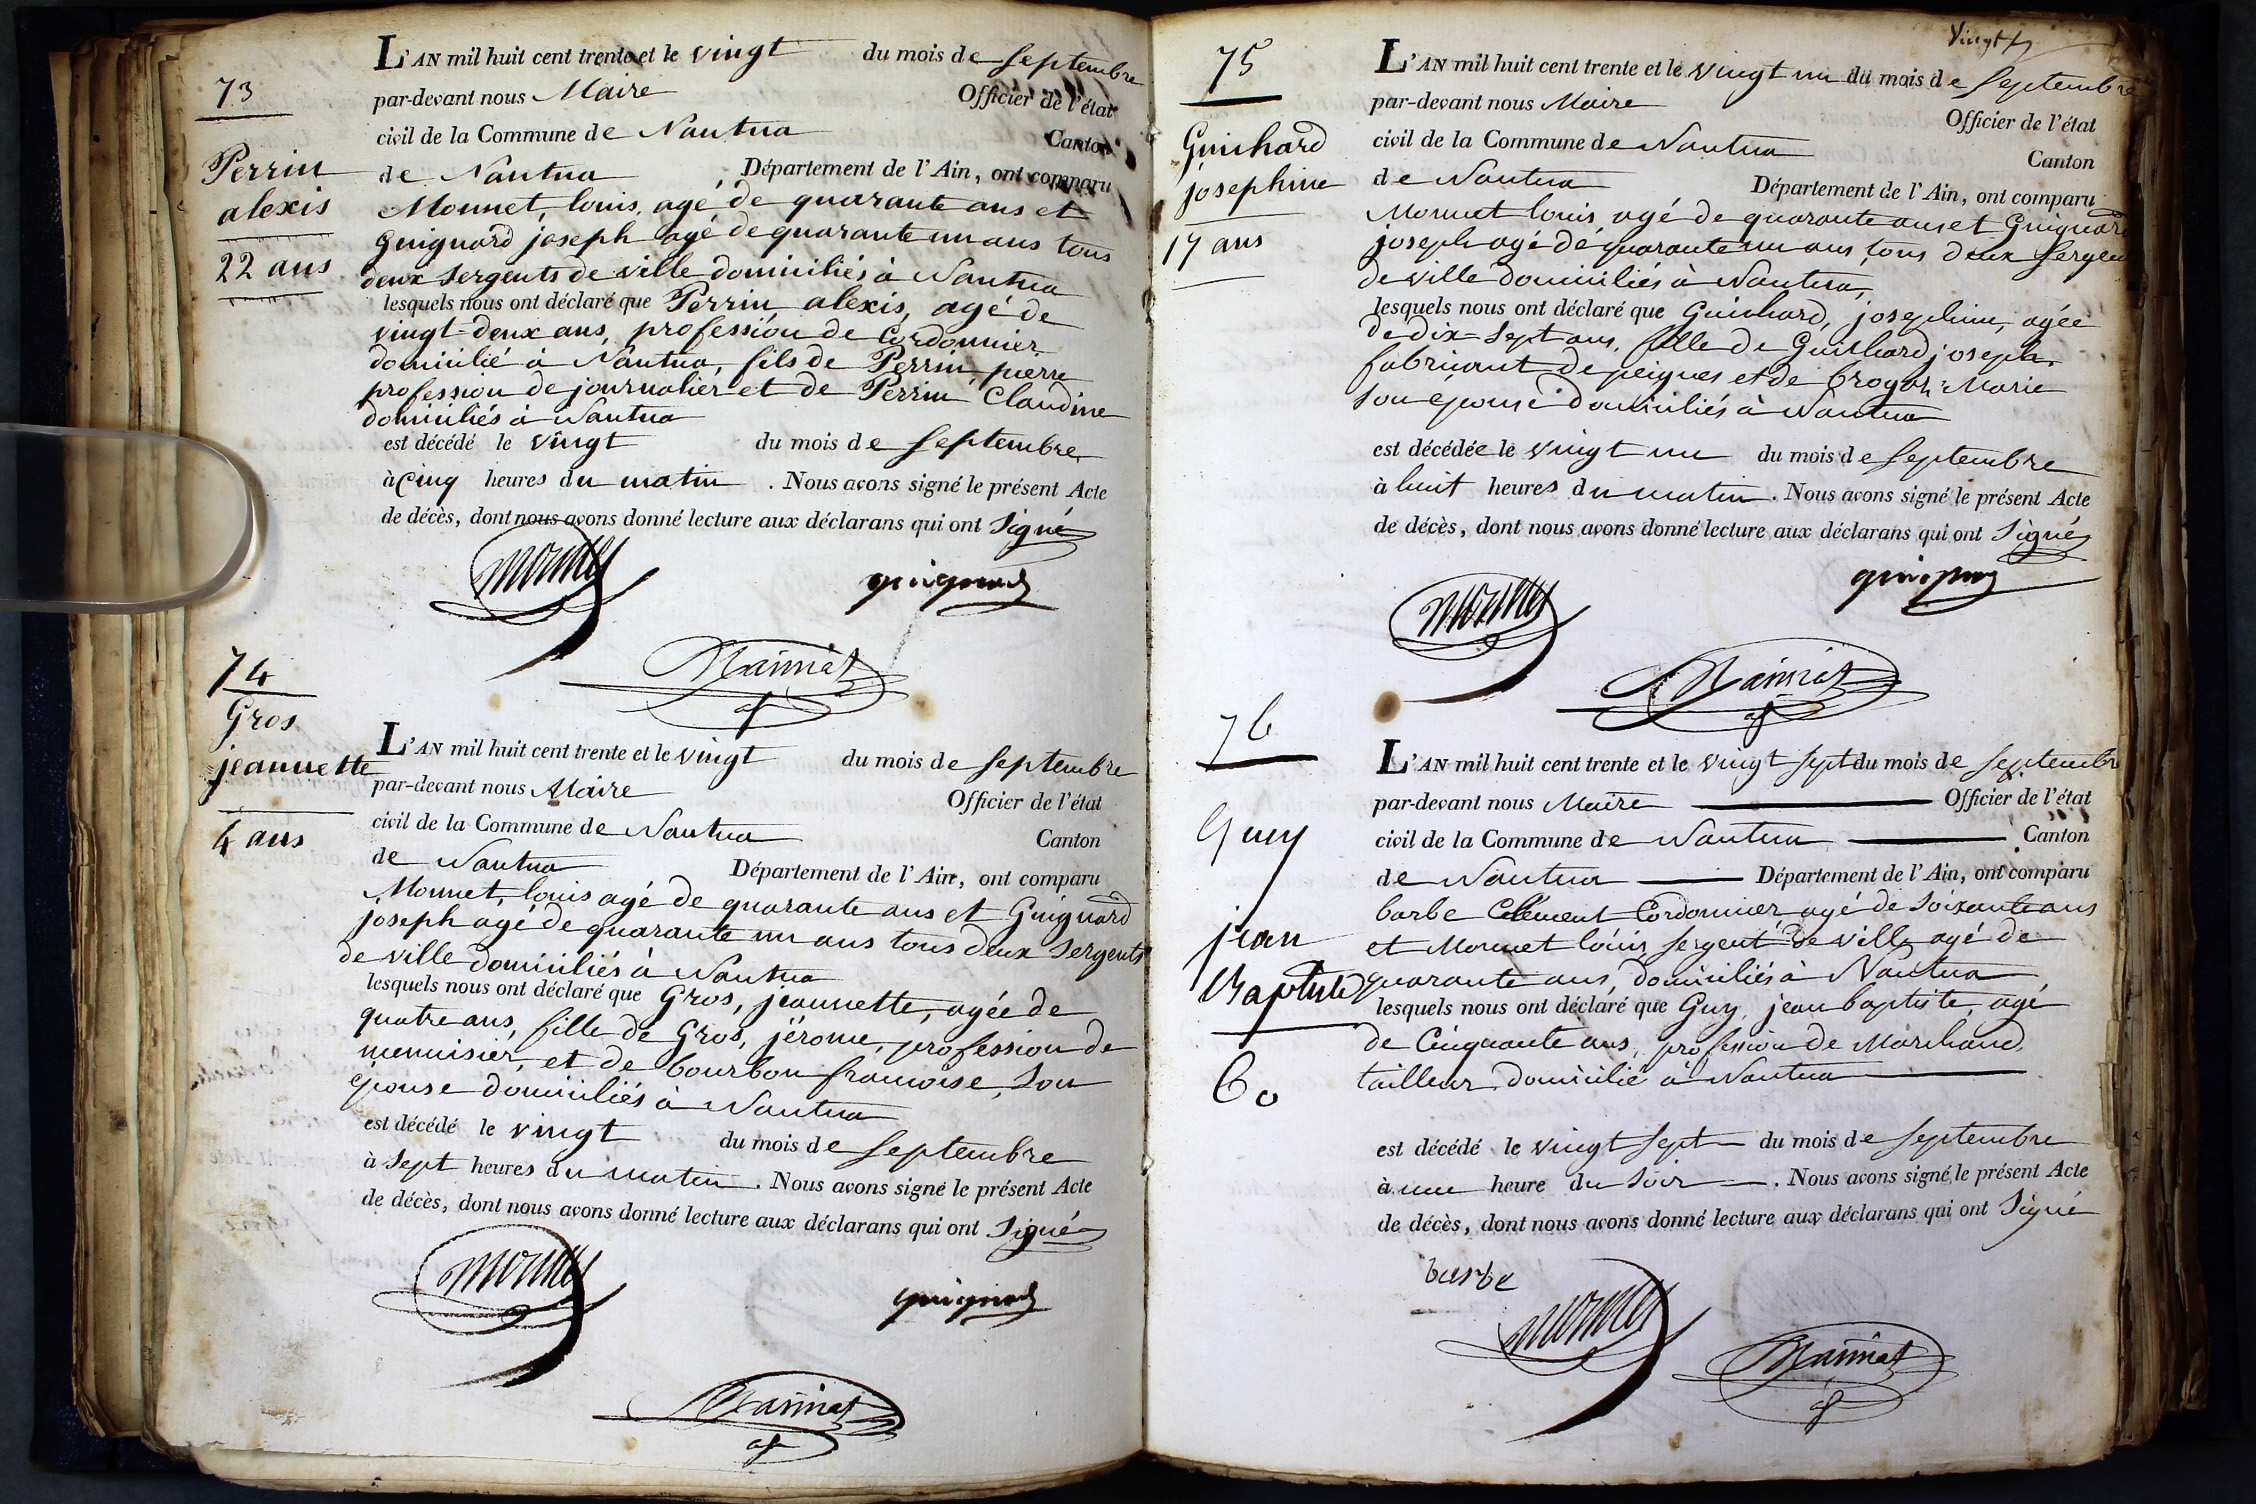 73
Perrin
alexis
22 ans
L'AN mil huit cent trente et le vingt du mois de septembre
par-devant nous Maire Officier de l'état
civil de la Commune de Nantua Canton
de Nantua Département de l'Ain, ont comparu
Monnet, louis, agé de quarante ans et
Guignard joseph agé de quarante un ans tous
deux sergents de ville domiciliés à Nantua
lesquels nous ont déclaré que Perrin, alexis, agé de
vingt-deux ans, profession de Cordonnier
domicilié à Nantua, fils de Perrin, pierre
profession de journalier et de Perrin Claudine
domiciliés à Nantua
est décédé le vingt du mois de septembre
à cinq heures du matin. Nous avons signé le présent Acte
de décès, dont nous avons donné lecture aux déclarans qui ont signé
monnet guignard
74
Gros
jeannette
4 ans
L'AN mil huit cent trente et le vingt du mois de septembre
par-devant nous Maire Officier de l'état
civil de la Commune de Nantua Canton
de Nantua Département de l'Ain, ont comparu
Monnet, louis agé de quarante ans et Guignard
joseph agé de quarante un ans tous deux sergents
de ville domiciliés à Nantua
lesquels nous ont déclaré que Gros, jeannette, agée de
quatre ans, fille de Gros, jérome, profession de
menuisier, et de bourbon francoise, son
épouse domiciliés à Nantua
est décédé le vingt du mois de septembre
à sept heures du matin. Nous avons signé le présent Acte
de décès, dont nous avons donné lecture aux déclarans qui ont signé
monnet guignard
75
Guichard
josephine
17 ans
L'AN mil huit cent trente et le vingt un du mois de septembre
par-devant nous Maire Officier de l'état
civil de la Commune de Nantua Canton
de Nantua Département de l'Ain, ont comparu
Monnet louis, agé de quarante ans et Guignard
joseph agé de quarante un ans, tous deux sergen
de ville domiciliés à Nantua,
lesquels nous ont déclaré que Guichard, josephine, agée
de dix-sept ans, fille de Guichard joseph
fabricant de peignes et de Marie
son épouse domiciliés à Nantua
est décédée le vingt un du mois de septembre
à huit heures du matin. Nous avons signé le présent Acte
de décès, dont nous avons donné lecture aux déclarans qui ont signé
guignard
monnet
76
Guy
jean
Baptiste
60
L'AN mil huit cent trente et le vingt sept du mois de septembre
par-devant nous Maire Officier de l'état
civil de la Commune de Nantua Canton
de Nantua Département de l'Ain, ont comparu
barbe Clément Cordonnier agé de soixante ans
et Monnet louis, sergent de ville agé de
quarante ans, domiciliés à Nantua
lesquels nous ont déclaré que Guy, jean baptiste, agé
de Cinquante ans, profession de Marchand
tailleur domicilié à Nantua
est décédé le vingt sept du mois de septembre
à une heure du soir. Nous avons signé le présent Acte
de décès, dont nous avons donné lecture aux déclarans qui ont signé
barbe
monnet